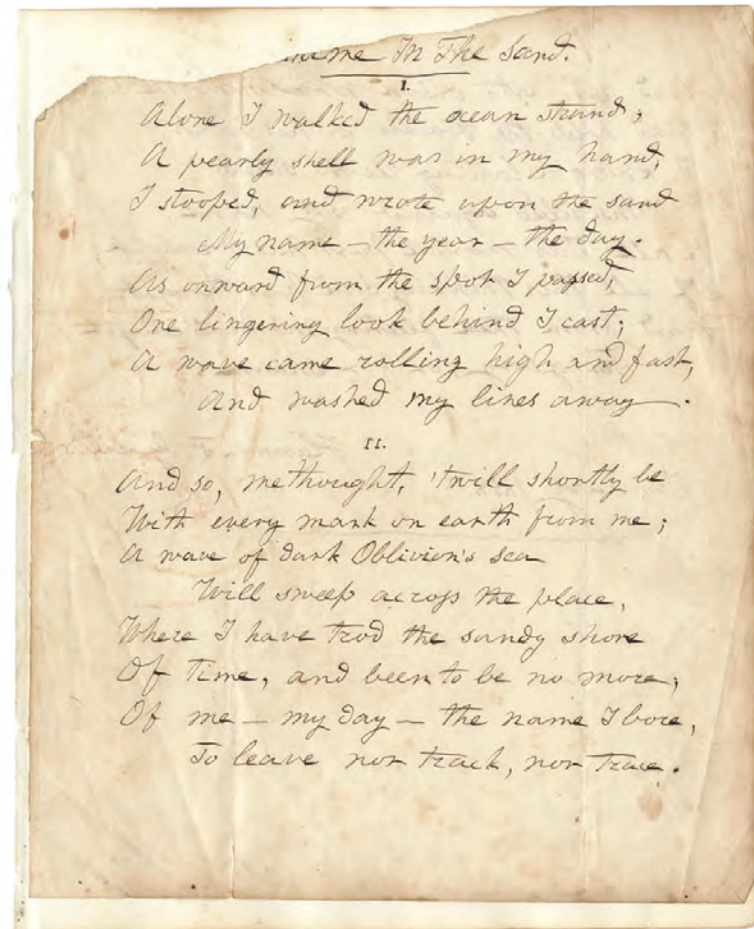 In The Sand.
I.
Alone I walked the ocean strand,
A pearly shell was in my hand,
I stooped, and wrote upon the sand
My name – the year – the day.
As onward from the spot I passed,
One lingering look behind I cast;
A wave came rolling high and fast,
And washed my lines away.
II.
And so, methought, 'twill shortly be
With every mark on earth from me;
A wave of dark Oblivion's sea
Will sweep across the place,
Where I have trod the sandy shore
Of Time, and been to be no more,
Of me – my day – the name I bore,
To leave nor track, nor trace.